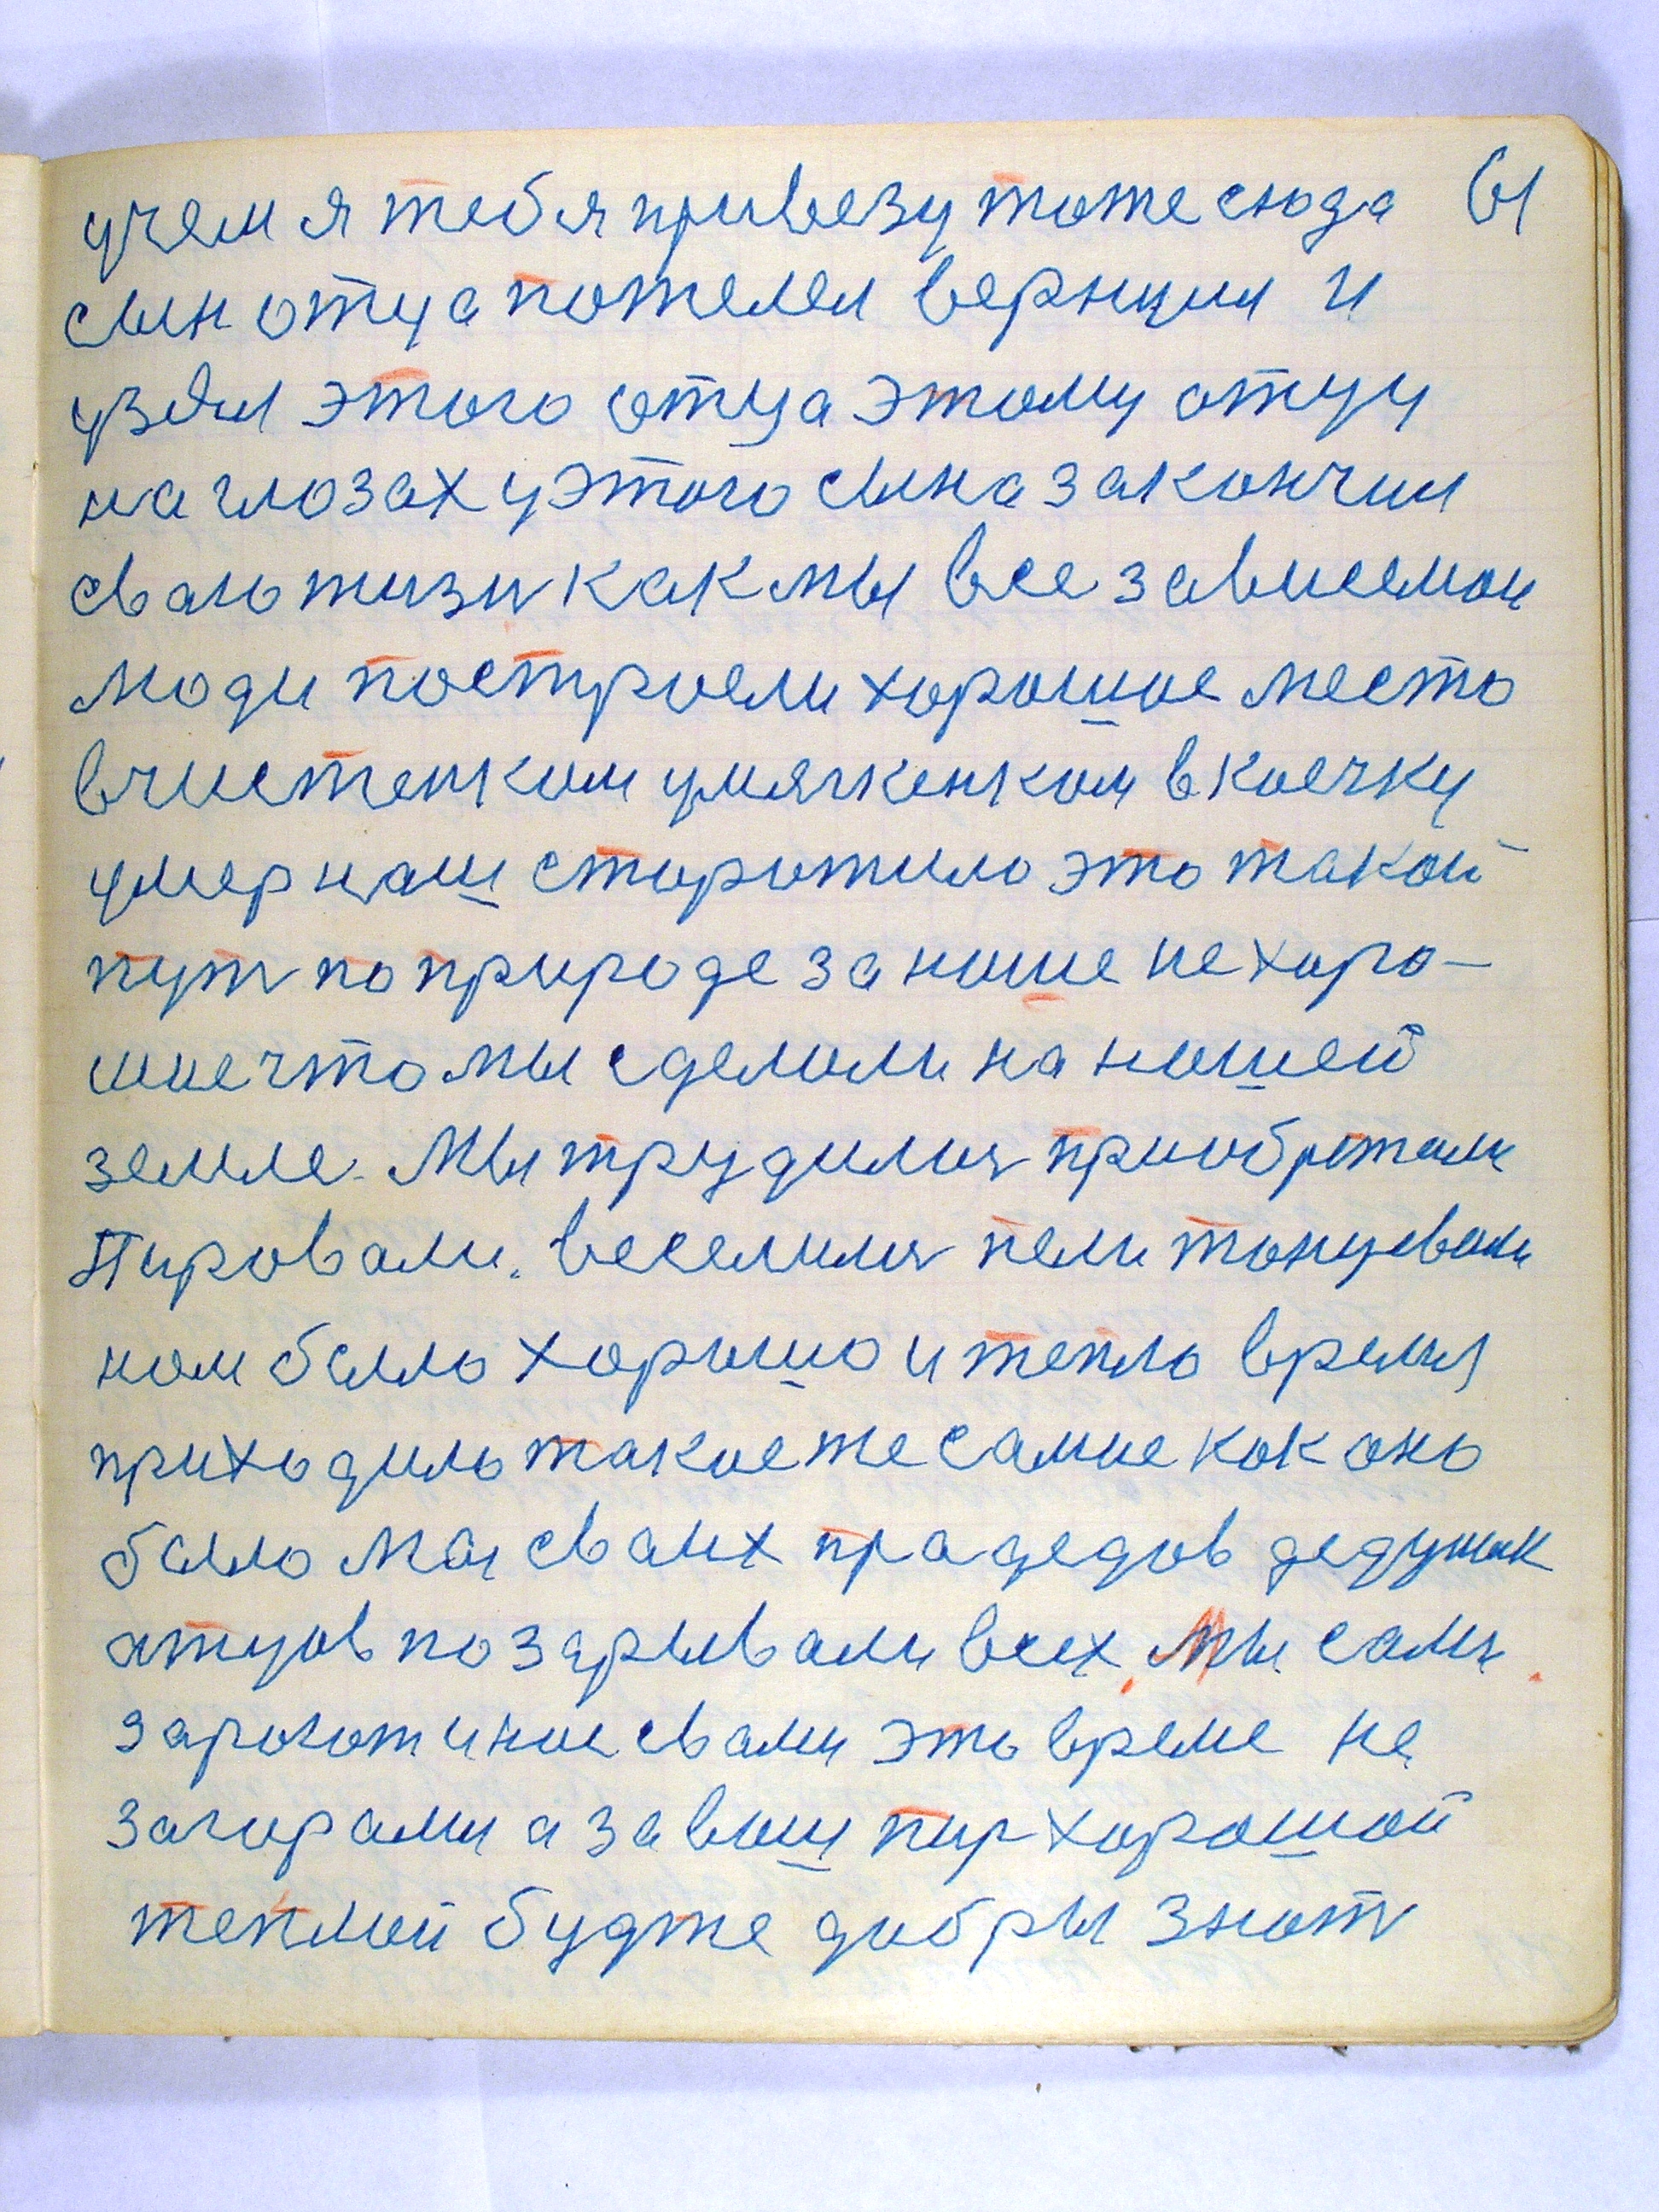 учем я тебя привезу тоже сюда 61
сын отца пожелел вернули и
узял этого отца этому отцу
на глозах у этого сына закончил
сваю жизн как мы все зависемои
люди построели хорошое место
в чистенком умягкенком в коечку
умер наш старожило это такой
пут по природе за нише не хоро-
шие что мы сделоли на нашей
земле. Мы трудились приобретали
Пировали. веселились пели тонцевали
ном было хорошо и тепло время
приходило такое же самое как оно
было мы сваих прадедов дедушик
атцов позарывали всех. Мы сами
зароют и ное свами это време не
загорами а за ваш пир хорошой
теплой будте добры знот